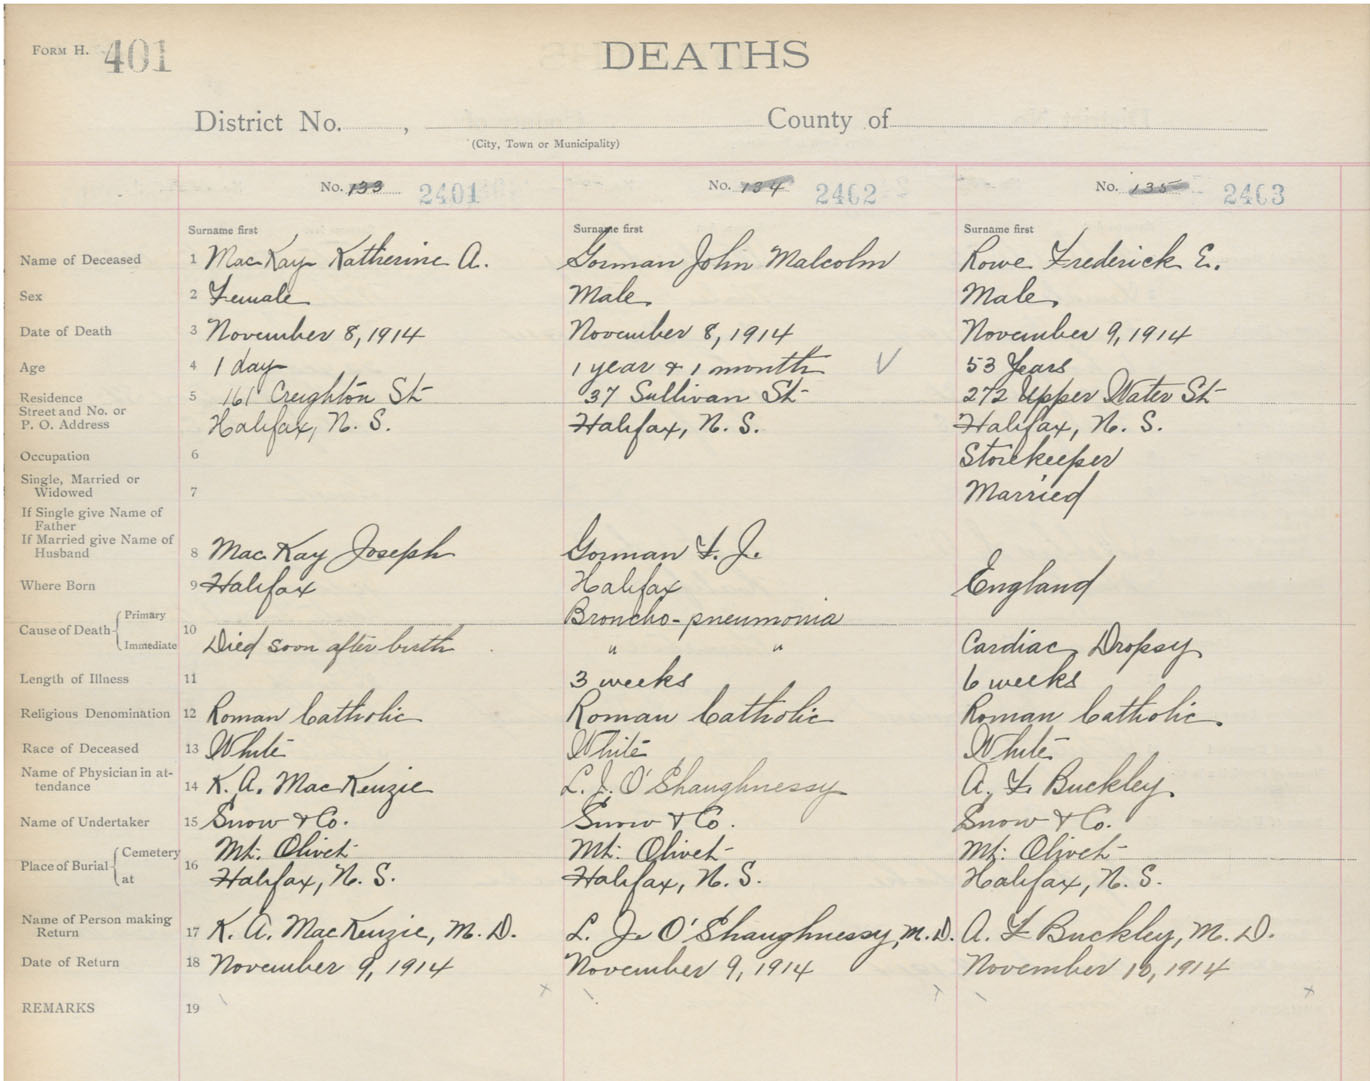 FORM H. 401
DEATHS
District No. , County of
(City, Town or Municipality)
No. 133 2401 No. 134 2402 No. 135 2403
Surname first Surname first Surname first
Name of Deceased 1 MacKay Katherine A. Gorman John Malcolm Rowe Frederick E.
Sex 2 Female Male Male
Date of Death 3 November 8, 1914 November 8, 1914 November 9, 1914
Age 4 1 day 1 year & 1 month 53 Years
Residence 5 161 Creighton St 37 Sullivan St 272 Upper Water St
Street and No. or
P. O. Address Halifax, N. S. Halifax, N. S. Halifax, N. S.
Occupation 6 Storekeeper
Single, Married or
Widowed 7 Married
If Single give Name of
Father
If Married give Name of
Husband 8 MacKay Joseph Gorman F. J.
Where Born 9 Halifax Halifax England
Cause of Death Primary 10 Broncho-pneumonia
Immediate Died soon after birth " " Cardiac Dropsy
Length of Illness 11 3 weeks 6 weeks
Religious Denomination 12 Roman Catholic Roman Catholic Roman Catholic.
Race of Deceased 13 White White White
Name of Physician in at-
tendance 14 K. A. MacKenzie L. J. O'Shaughnessy A. F. Buckley
Name of Undertaker 15 Snow & Co. Snow & Co. Snow & Co.
Place of Burial Cemetery 16 Mt. Olivet Mt. Olivet Mt. Olivet
at Halifax, N. S. Halifax, N. S. Halifax, N. S.
Name of Person making
Return 17 K. A. MacKenzie, M. D. L. J. O'Shaughnessy, M. D. A. F Buckley, M. D.
Date of Return 18 November 9, 1914 November 9, 1914 November 10, 1914
REMARKS 19